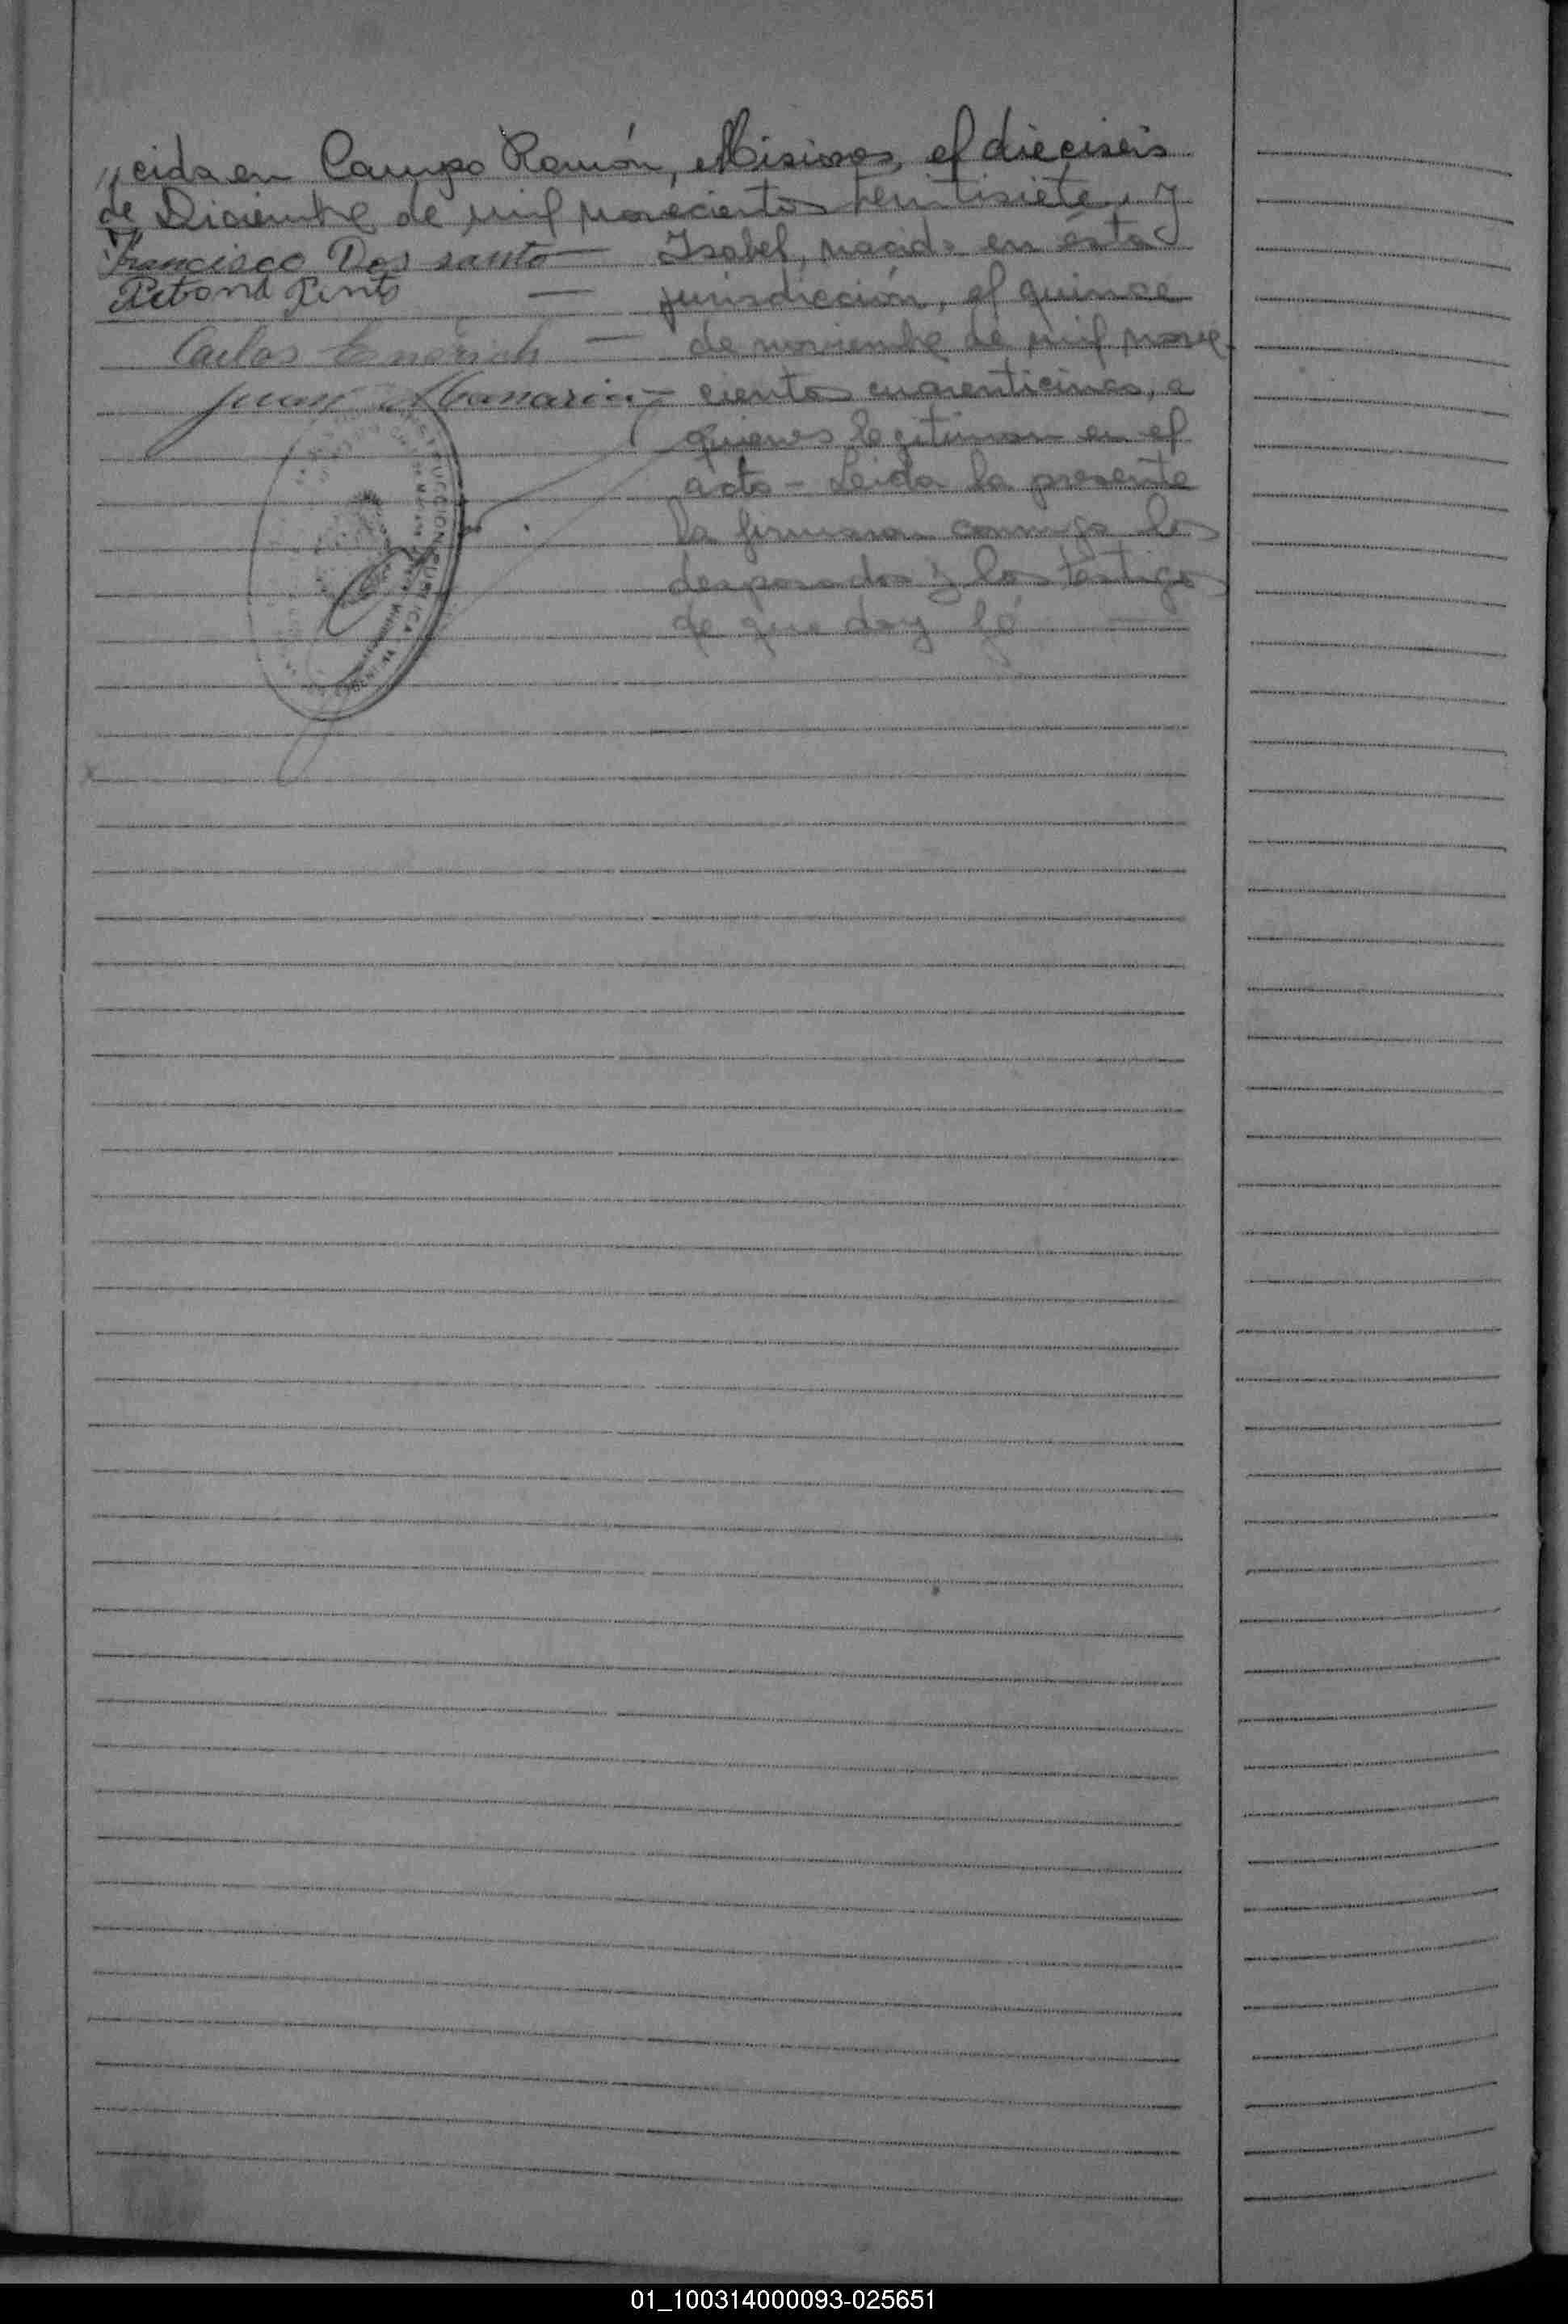 //cida en Campo Ramón, Misiones, el dieciseis
de Diciembre de mil novecientos treintisiete, y
Francisco Dos santo — Isabel, nacida en ésta
Pinto — jurisdicción, el quince
Carlos — de noviembre de mil nove-
Juan — cientos cuarenticinco, a
quienes legitiman en el
acto - Leida la presente
la firmaron conmigo los
desposados y los testigos
de que doy fé —
INSTRUCCION PUBLICA
01_100314000093-025651